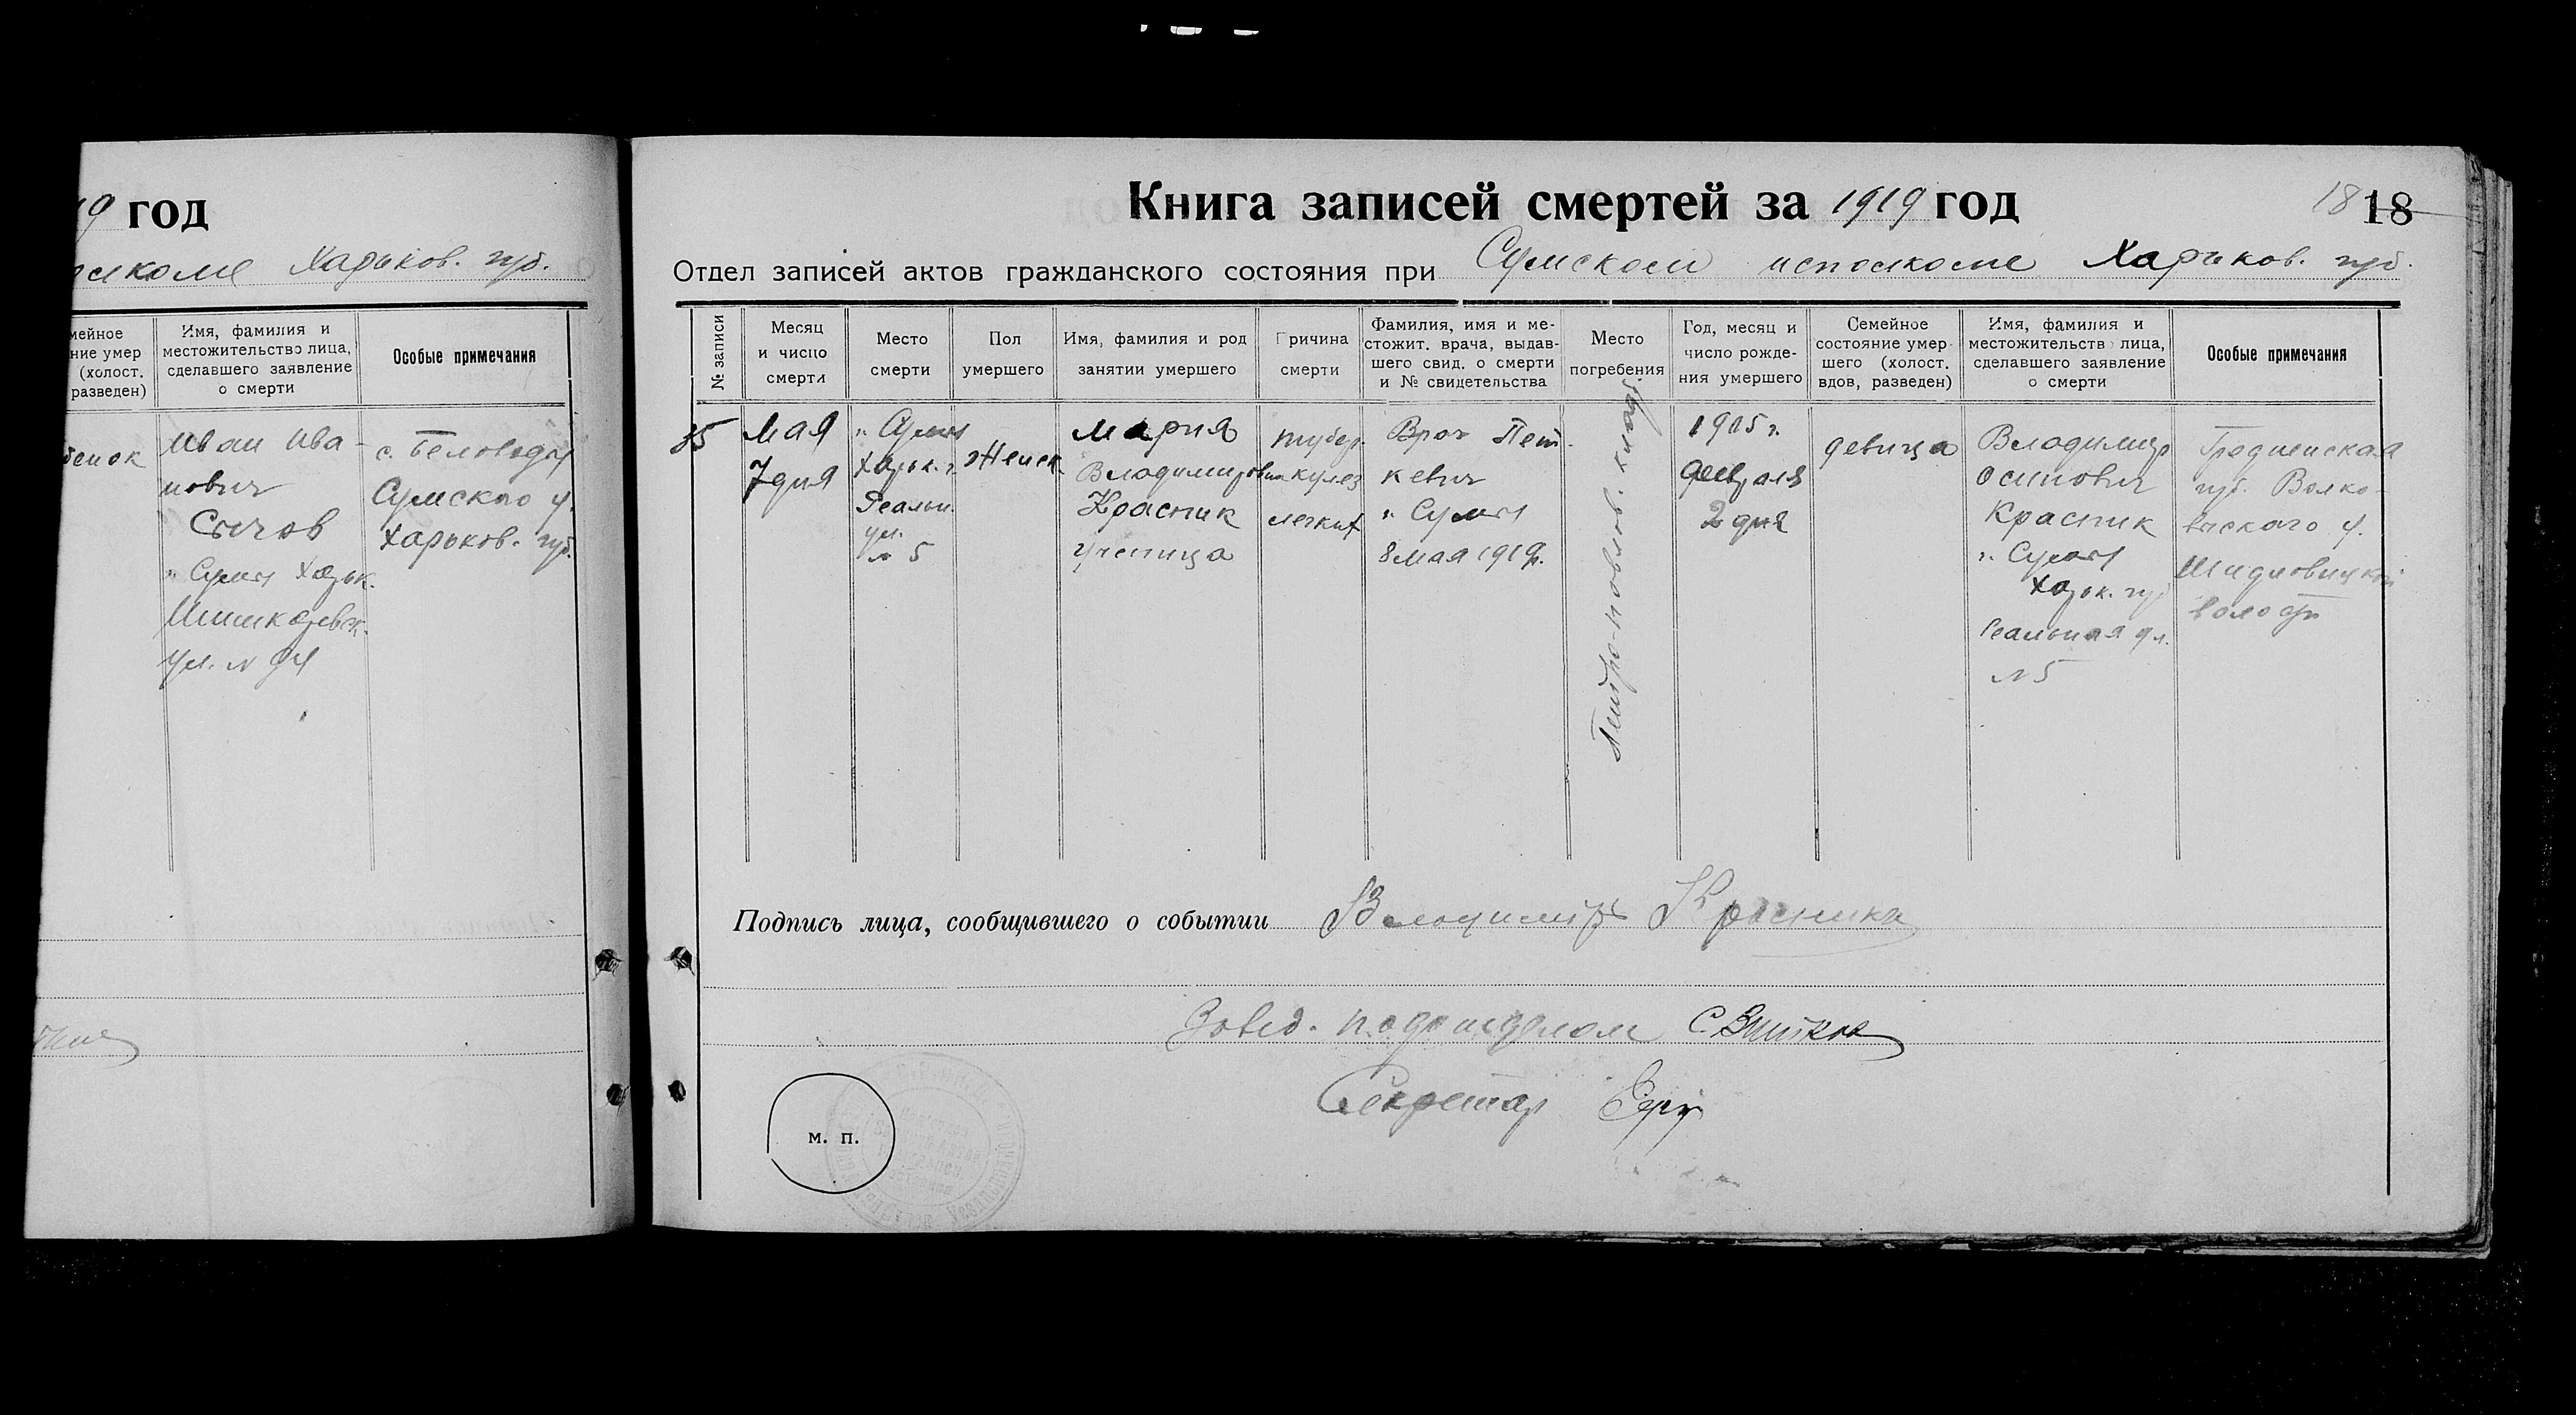 19 год
Харьков. губ.
Имя, фамилия и
местожительство лица,
сделавшего заявление
о смерти
Особые примечания
мейное
ние умер
(холост.
разведен)
Иван Ива-
нович
Сычов
г. Сумы Харьк.
ул. №
с. Беловоды
Сумского у.
Харьков. губ.
Книга записей смертей за 1919 год
18 18
Отдел записей актов гражданского состояния при Сумском исполкоме Харьков. губ.
№ записи
Месяц
и число
смерти
Место
смерти
Пол
умершего
Имя, фамилия и род
занятии умершего
Причина
смерти
Фамилия, имя и ме-
стожит. врача, выдав-
шего свид. о смерти
и № свидетельства
Место
погребения
Год, месяц и
число рожде-
ния умершего
Семейное
состояние умер
шего (холост.
вдов, разведен)
Имя, фамилия и
местожительство лица,
сделавшего заявление
о смерти
Особые примечания
35
Мая
7 дня
г. Сумы
Харьк. г.
Реальн.
ул.
№ 5
Женск
Мария
Владимировна
Красник
ученица
тубер.
кулез
легких
Врач Пет-
кевич
г. Сумы
8 мая 1919 г.
Петро-Павлов. кладб.
1905 г.
февраля
2 дня
девица
Владимир
Осипович
Красник
г. Сумы
Харьк. губ
Реальная ул.
№ 5
Гродненская
губ. Волко-
выского у.
волость
Подпись лица, сообщившего о событии Владимир Красник
Завед. подотделом
Секретарь
М. П.